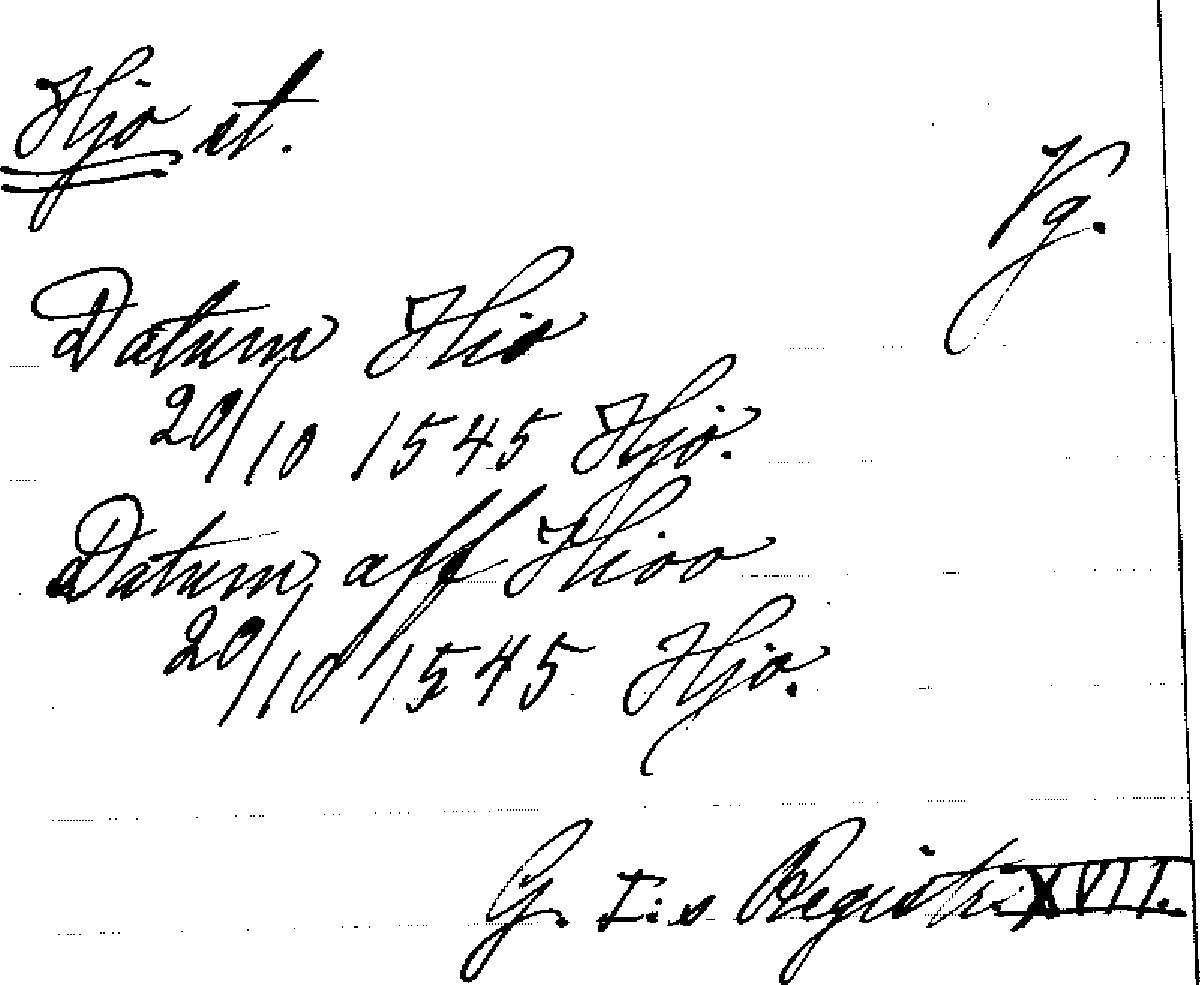 Hjo st.
Vg.
Datum Hio
20/10 1545 Hjo.
Datum aff Hioo
20/10 1545 Hjo.
G. I:s Registr. XVII.